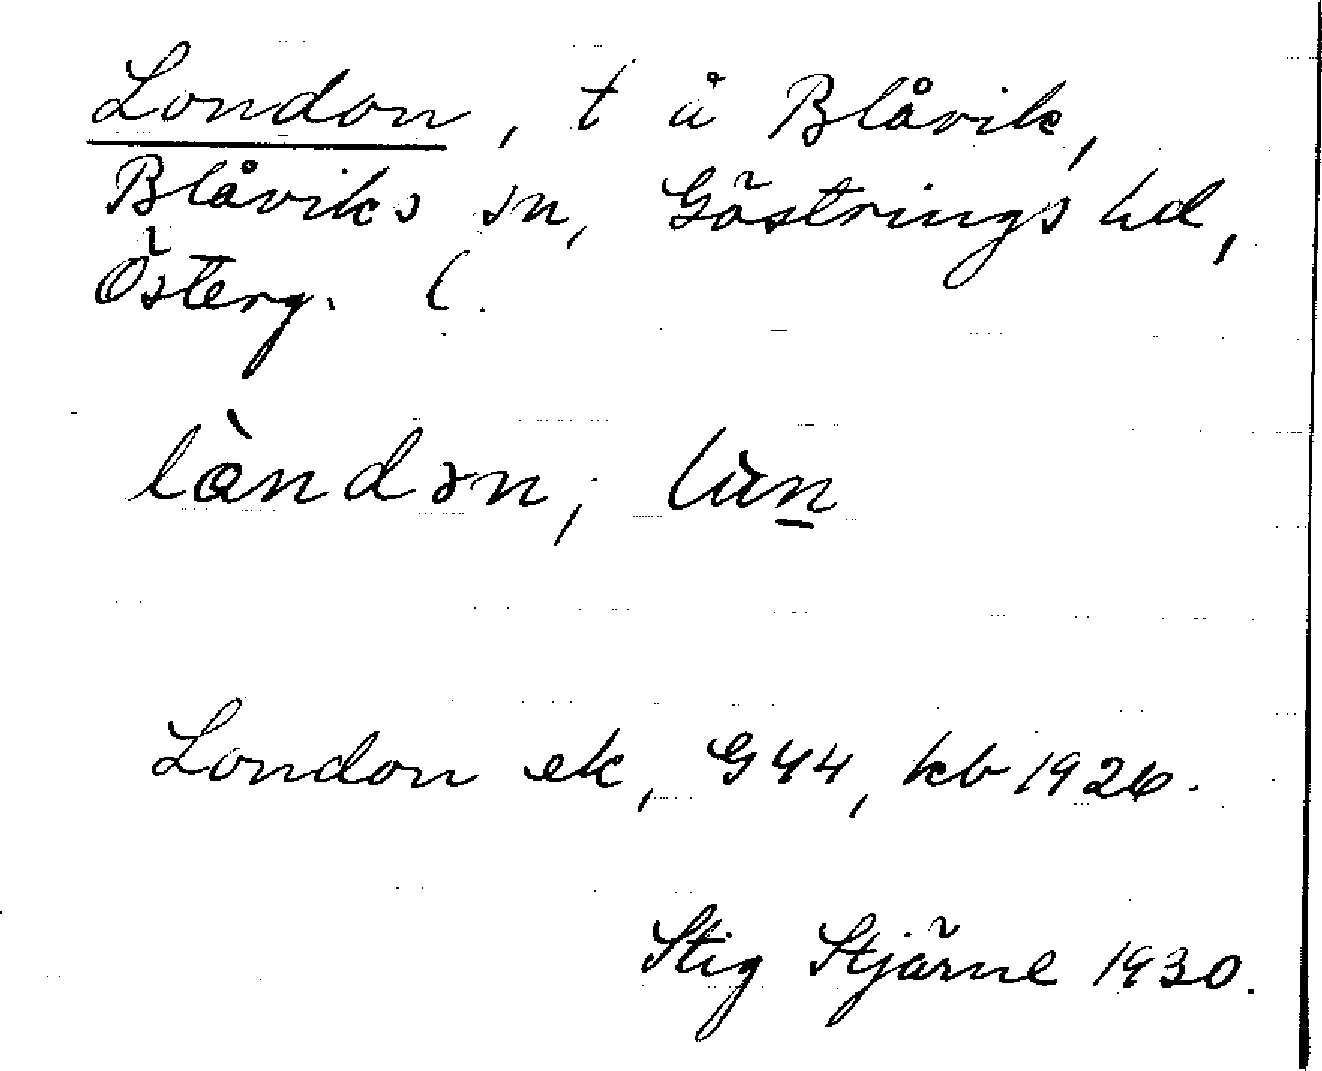 London, t å Blåvik,
Blåviks sn, Göstrings hd,
Österg. l.
làndən, lùn
London ek, G 44, kb 1926.
Stig Stjärne 1930.